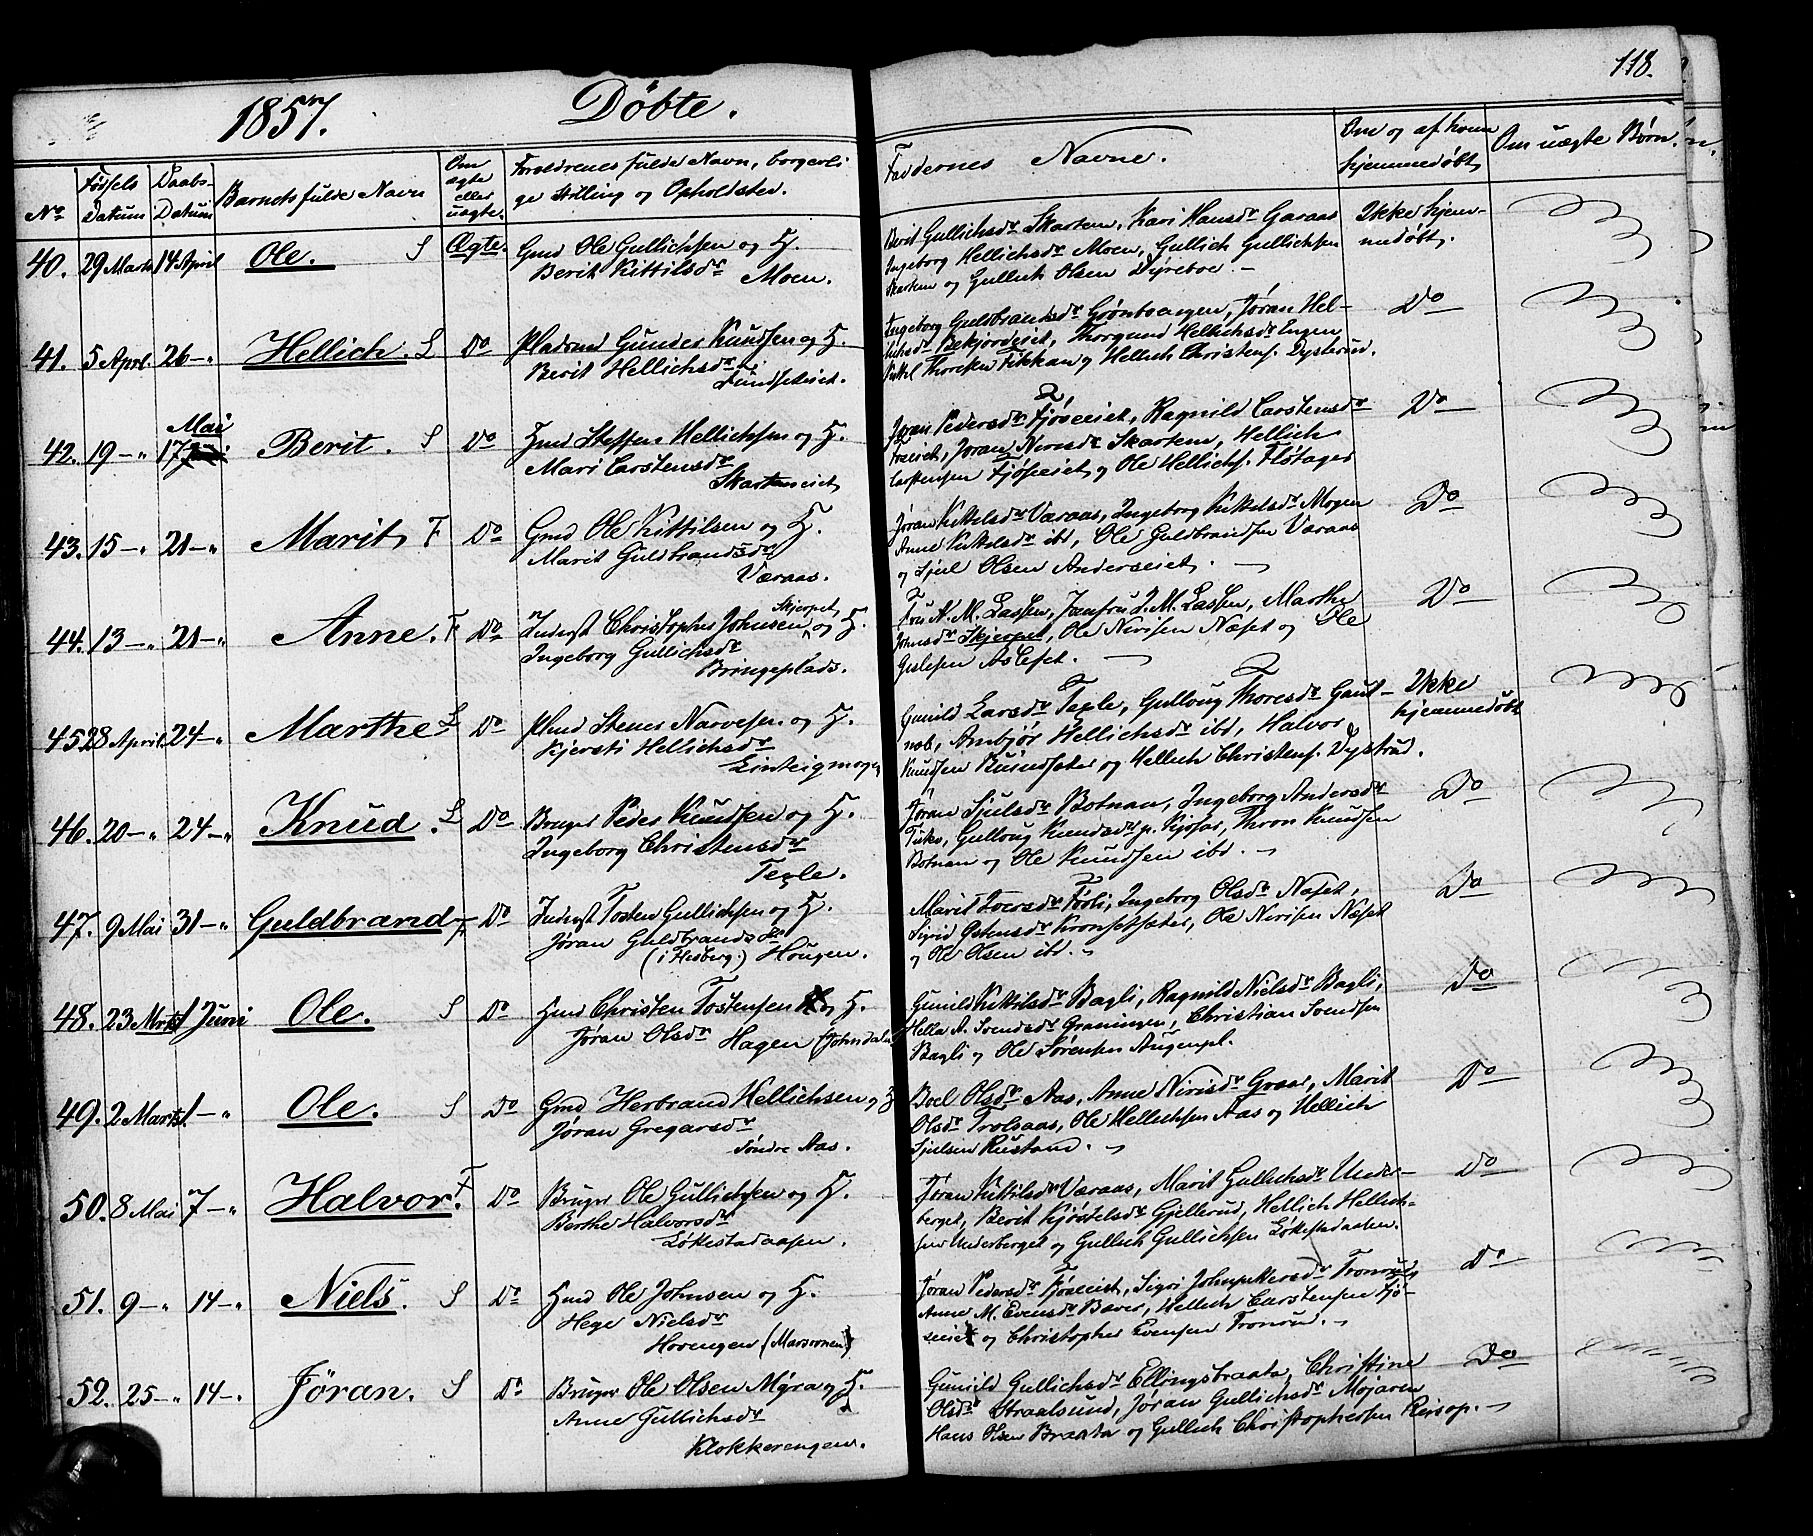 118.
1857. Döbte.
No Fødsels Datum Daabs-Datum Barnets fulde Navn Om ægte eller uægte. Forældrenes fulde Navn, borgerlige Stilling og Opholdsted. Faddernes Navne. Om og af hvem hjemmedøbt Om uægte Børn.
40. 29 Marts 14 April Ole. S Ægte. Gmd Ole Gullichsen og H.
Berit Kittilsdr Moen.
Berit Gullichsdr Skartum, Kari Hansdr Garaas
Ingeborg Hellichsdr Moen, Gullich Gullichsen
Skartum og Gullich Olsen Dyreboe. -
Ikke hjemmedøbt.
41. 5 April. 26 -" Hellich. L Do Pladsmd Gunder Knudsen og H.
Berit Hellichsdr
Lundseteiet.
Ingeborg Guldbrandsdr Grøntvangen, Jøran Hel-
lichsdr Bekjordeiet, Thorgund Hellichsdr Engen
Kittel Thoresen Fikkan og Hellich Christens. Dysterud.
Do
42. 19 -" 17 Mai Berit. S Do Hmd Steffen Hellichsen og H.
Mari Carstensdr
Skartumeiet
Jøran Pedersdr Fjøseeiet, Ragnild Carstensdr
Træeiet, Jøran Nirisdr Skartum, Hellich
Carstensen Fjøseeiet og Ole Hellichs. Fløtager
Do
43. 15 -" 21 -" Marit F Do Gmd Ole Kittilsen og H.
Marit Guldbrandsdr
Væraas.
Jøran Kittelsdr Væraas, Ingeborg Kittelsdr Mogen
Anne Kittelsdr ibd, Ole Guldbrandsen Væraas
og Sjul Olsen Anderseiet. -
Do
44. 13 -" 21 -" Anne. F Do Inderst Christopher Johnsen Skjerpet og H.
Ingeborg Gullichsdr
Bringeplads.
Fru N. M. Lassen, Jomfru J. M. Lassen, Marthe
Johnsdr Skjerpet, Ole Nirisen Næset og Ole
Gislesen Aslefet. -
Do
45. 28 April. 24 -" Marthe L Do Plmd Stener Narvesen og H.
Kjersti Hellichsdr
Linteigmogen
Gunild Larsdr Teple, Gulloug Thoresdr Gaut-
Ambjør Hellichsdr ibd, Halvor
Knudsen Ruudsæter og Hellich Christens. Dysterud.
Ikke hjemmedøbt
46. 20 -" 24 -" Knud. L Do Bruger Peder Knudsen og H.
Ingeborg Christensdr
Teple.
Jøran Sjulsdr Botnan, Ingeborg Andersdr
Gulloug Knudsdr Thron Knudsen
Botnan og Ole Knudsen ibd. -
Do
47. 9 Mai 31 -" Guldbrand F Do Inderst Tosten Gullichsen og H.
Jøran Guldbrandsdr
(i Hesberg.) Hougen.
Marit Toersdr Føsli, Ingeborg Olsdr Næset,
Sigrid Ostensdr Ole Nirisen Næset
og Ole Olsen ibd. -
Do
48. 23 Marts 1 Juni Ole. S Do Hmd Christen Tostensen og H.
Jøran Olsdr Hagen (Johnsdalen)
Gunild Kittilsdr Bagli, Ragnild Nielsdr Bagli,
Hella A. Svendsdr Graningen, Christian Svendsen
Bagli og Ole Sørensen Augenpl.
Do
49. 2 Marts 1 -" Ole. S Do Gmd Herbrand Hellichsen og H
Jøran Gregarsdr
Søndre Aas.
Boel Olsdr Aas, Anne Nirisdr Graas, Marit
Olsdr Trolsaas, Ole Hellichsen Aas og Hellich
Sjulsen Rustand. -
Do
50. 8 Mai 7 -" Halvor. F Do Bruger Ole Gullichsen og H.
Berthe Halvorsdr
Løkestadaasen.
Jøran Kittilsdr Væraas, Marit Gullichsdr Under-
berget, Berit Kjøstelsdr Gjellerud, Hellich Hellich-
sen Underberget og Gullich Gullichsen Løkestadaasen.
Do
51. 9 -" 14 -" Niels. S Do Hmd Ole Johnsen og H.
Hege Nielsdr
Hovengen (Marvoren)
Jøran Pedersdr Fjøseeiet, Sigri Johnsdr Tronrud,
Anne M. Evensdr Baver, Hellich Carstensen Fjø-
seeiet og Christopher Evensen Tronrud. -
Do
52. 25 -" 14 -" Jöran. S Do Bruger Ole Olsen Myra og H.
Anne Gullichsdr
Klokkerengen.
Gunild Gullichsdr Ellingsbraata, Christine
Olsdr Straalsund, Jøran Gullichsdr Mojaren
Hans Olsen Braata og Gullich Christophersen Reisop. -
Do